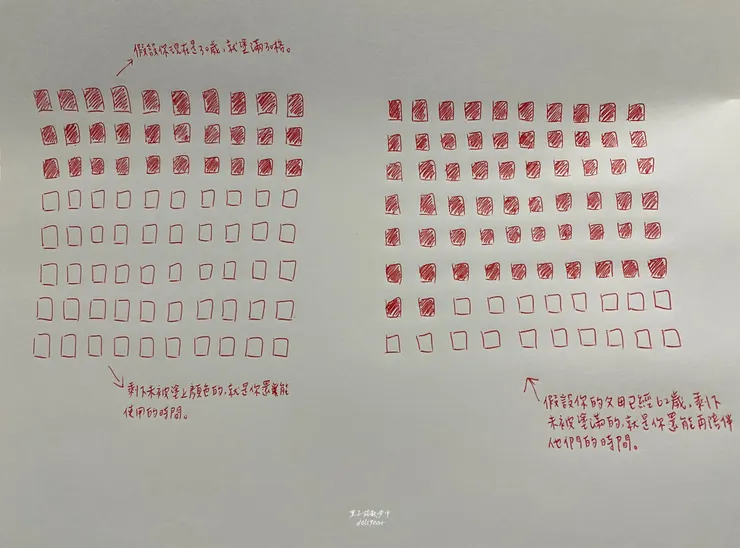 假設你現在是30歲，就塗滿30格。
剩下未被塗上顏色的，就是你還能
使用的時間。
假設你的父母已經62歲，剩下
未被塗滿的，就是你還能再陪伴
他們的時間。